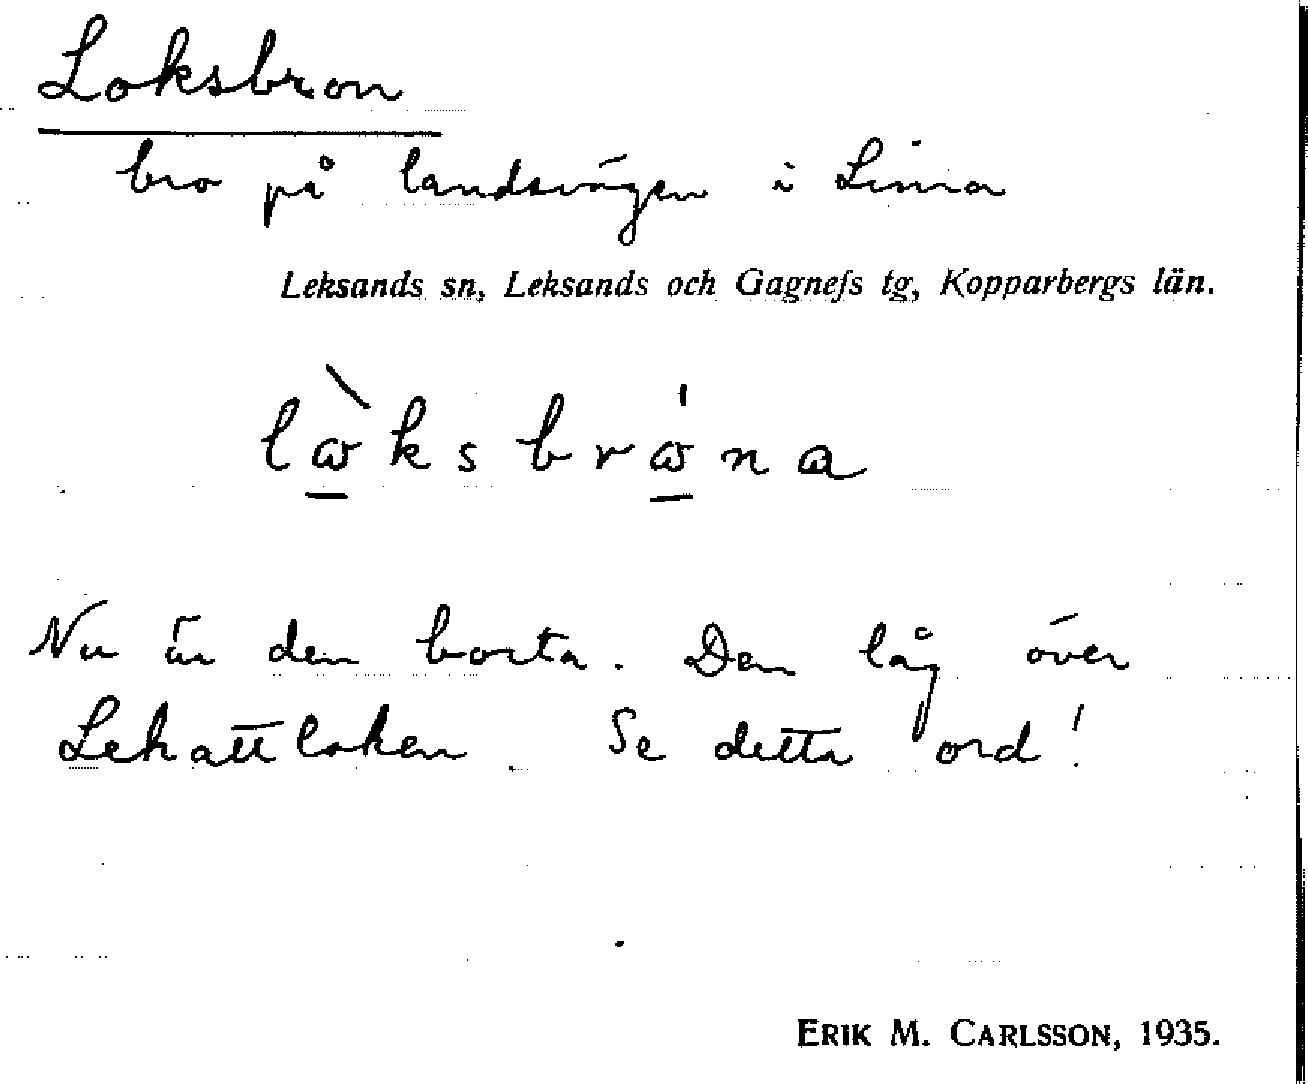 Loksbron
bro på landsvägen i Lima
Leksands sn, Leksands och Gagnefs tg, Kopparbergs län.
lὼ̲ksbrώ̲na
Nu är den borta. Den låg över
Lekattloken Se detta ord!
ERIK M. CARLSSON, 1935.